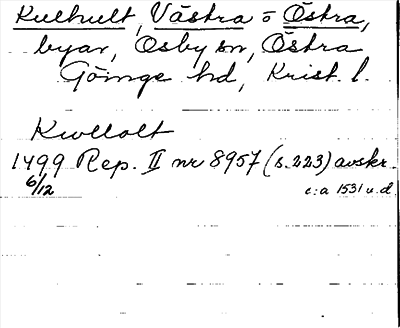 Kulhult, Västra o Östra,
byar, Osby sn, Östra
Göinge hd, Krist. l.
Kwllolt
1499 Rep. II nr 8957 (s. 223) avskr.
6/12 c:a 1531 u.d.